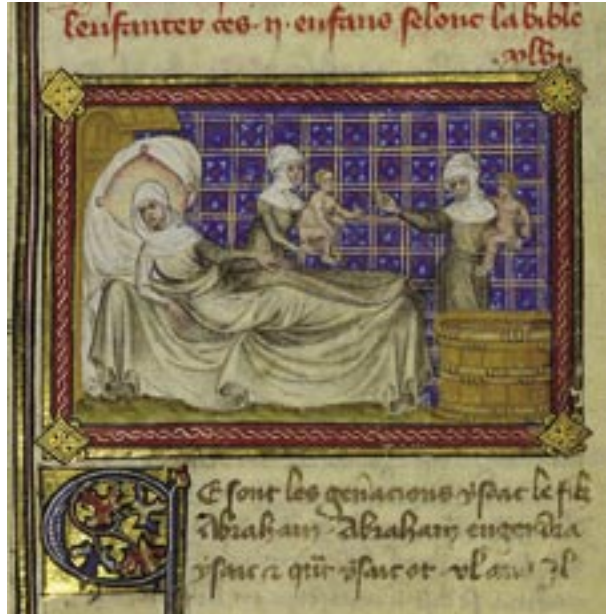 lenfanter ces .ij. enfans selonc la bible
.xlvi.
Ce sont les genacions ysaac le filz
Abraham . Abraham engendra
ysaac &